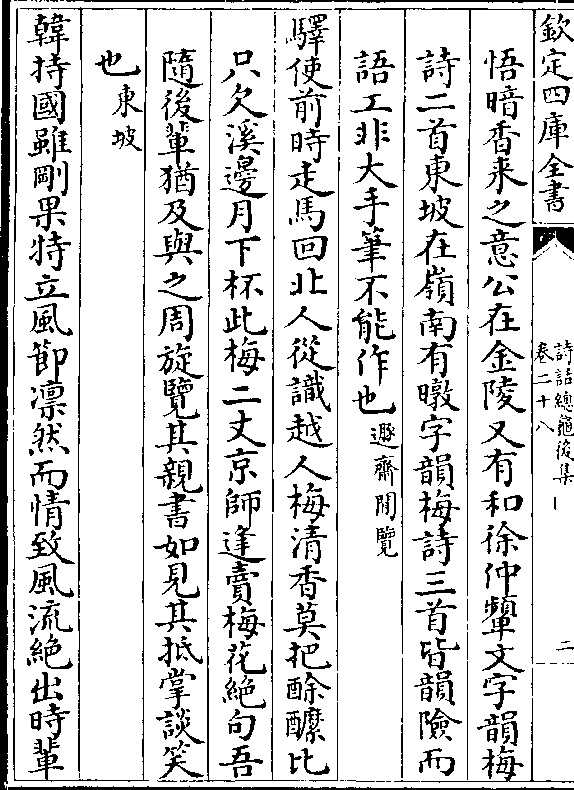 欽定四庫全書
詩話總龜後集
卷二十八
二
悟暗香来之意公在金陵又有和徐仲𩔖文字韻梅
詩二首東坡在嶺南有暾字韻梅詩三首皆韻險而
語工非大手筆不能作也遯齋閒覽
驛使前時走馬回北人從識越人梅清香莫把酴醾比
只欠溪邊月下杯此梅二丈京師逢賣梅花絶句吾
隨後輩猶及與之周旋覽其親書如見其抵掌談笑
也東坡
韓持國雖剛果特立風節凛然而情致風流絶出時輩